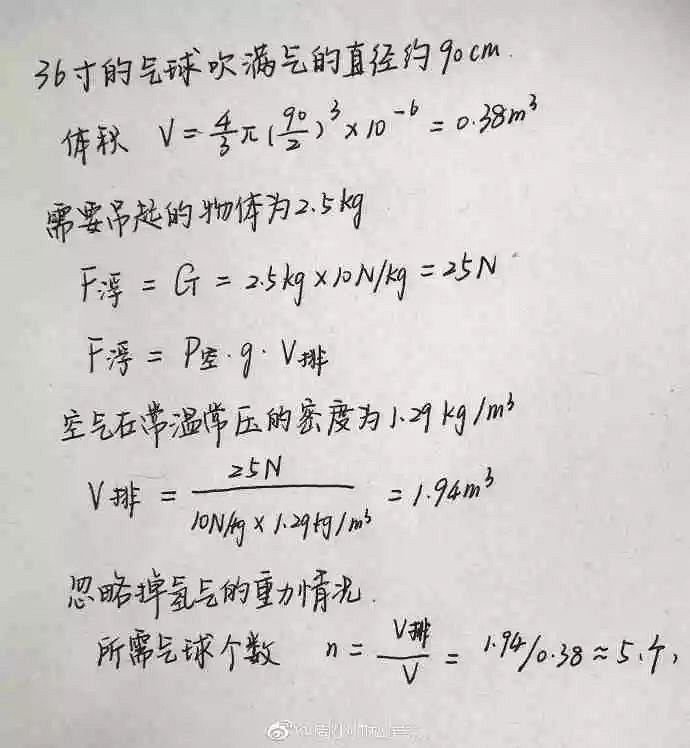 36寸的气球吹满气的直径约90cm.
体积 V=4/3π(90/2)³×10⁻⁶=0.38m³
需要吊起的物体为2.5kg
F浮=G=2.5kg×10N/kg=25N
F浮=ρ空·g·V排
空气在常温常压的密度为1.29kg/m³
V排=25N/10N/kg×1.29kg/m³=1.94m³
忽略掉氢气的重力情况.
所需气球个数 n=V排/V=1.94/0.38≈5个,